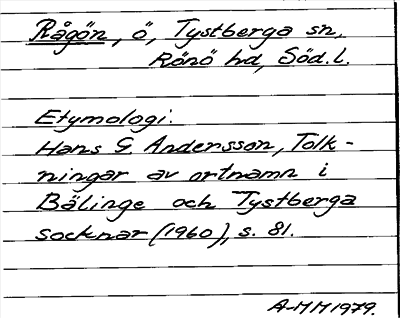 Rågön, ö, Tystberga sn,
Rönö hd, Söd.l.
Etymologi:
Hans G. Andersson, Tolk-
ningar av ortnamn i
Bälinge och Tystberga
socknar (1960), s. 81.
A-MM 1979.